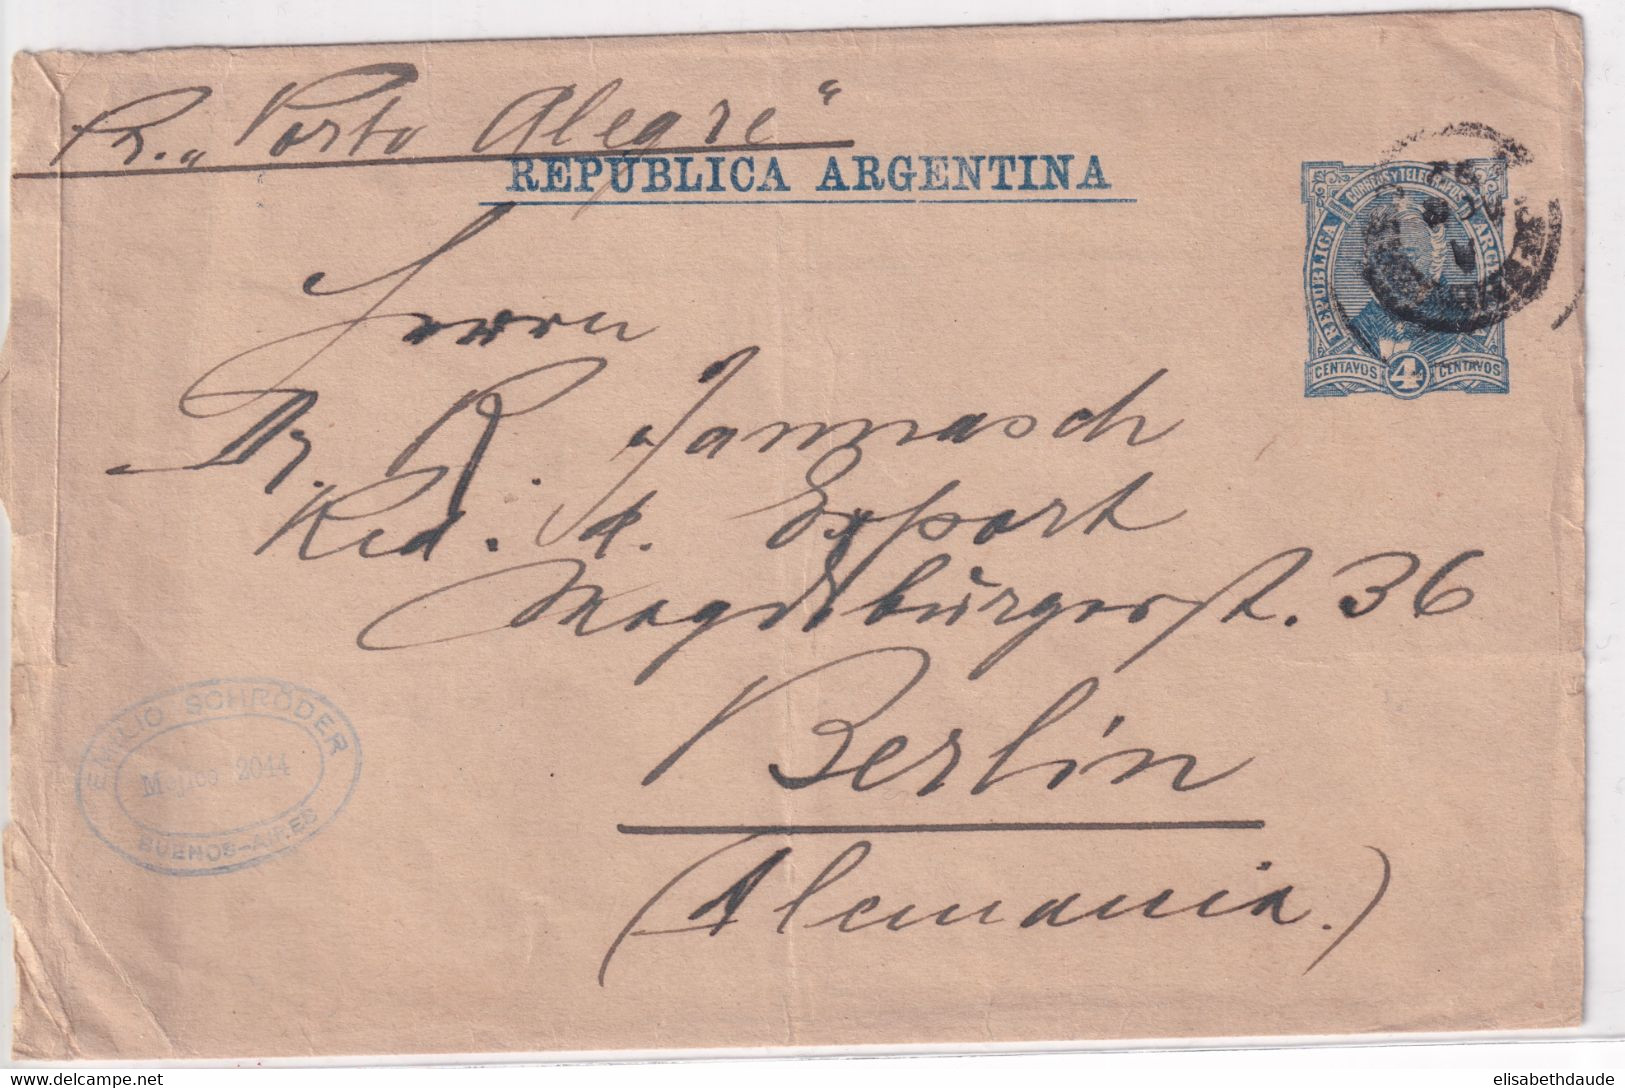 Pr. „Porto Alegre“
REPÚBLICA ARGENTINA
CORREOS Y TELEGRAFOS
REPUBLICA
CENTAVOS 4 CENTAVOS
Herrn
Dr. R. Jannasch
Red. d. Export
Magdeburgerst. 36
Berlin
(Alemania.)
EMILIO SCHRÖDER
Mejico 2044
BUENOS-AIRES
www.delcampe.net
elisabethdaude